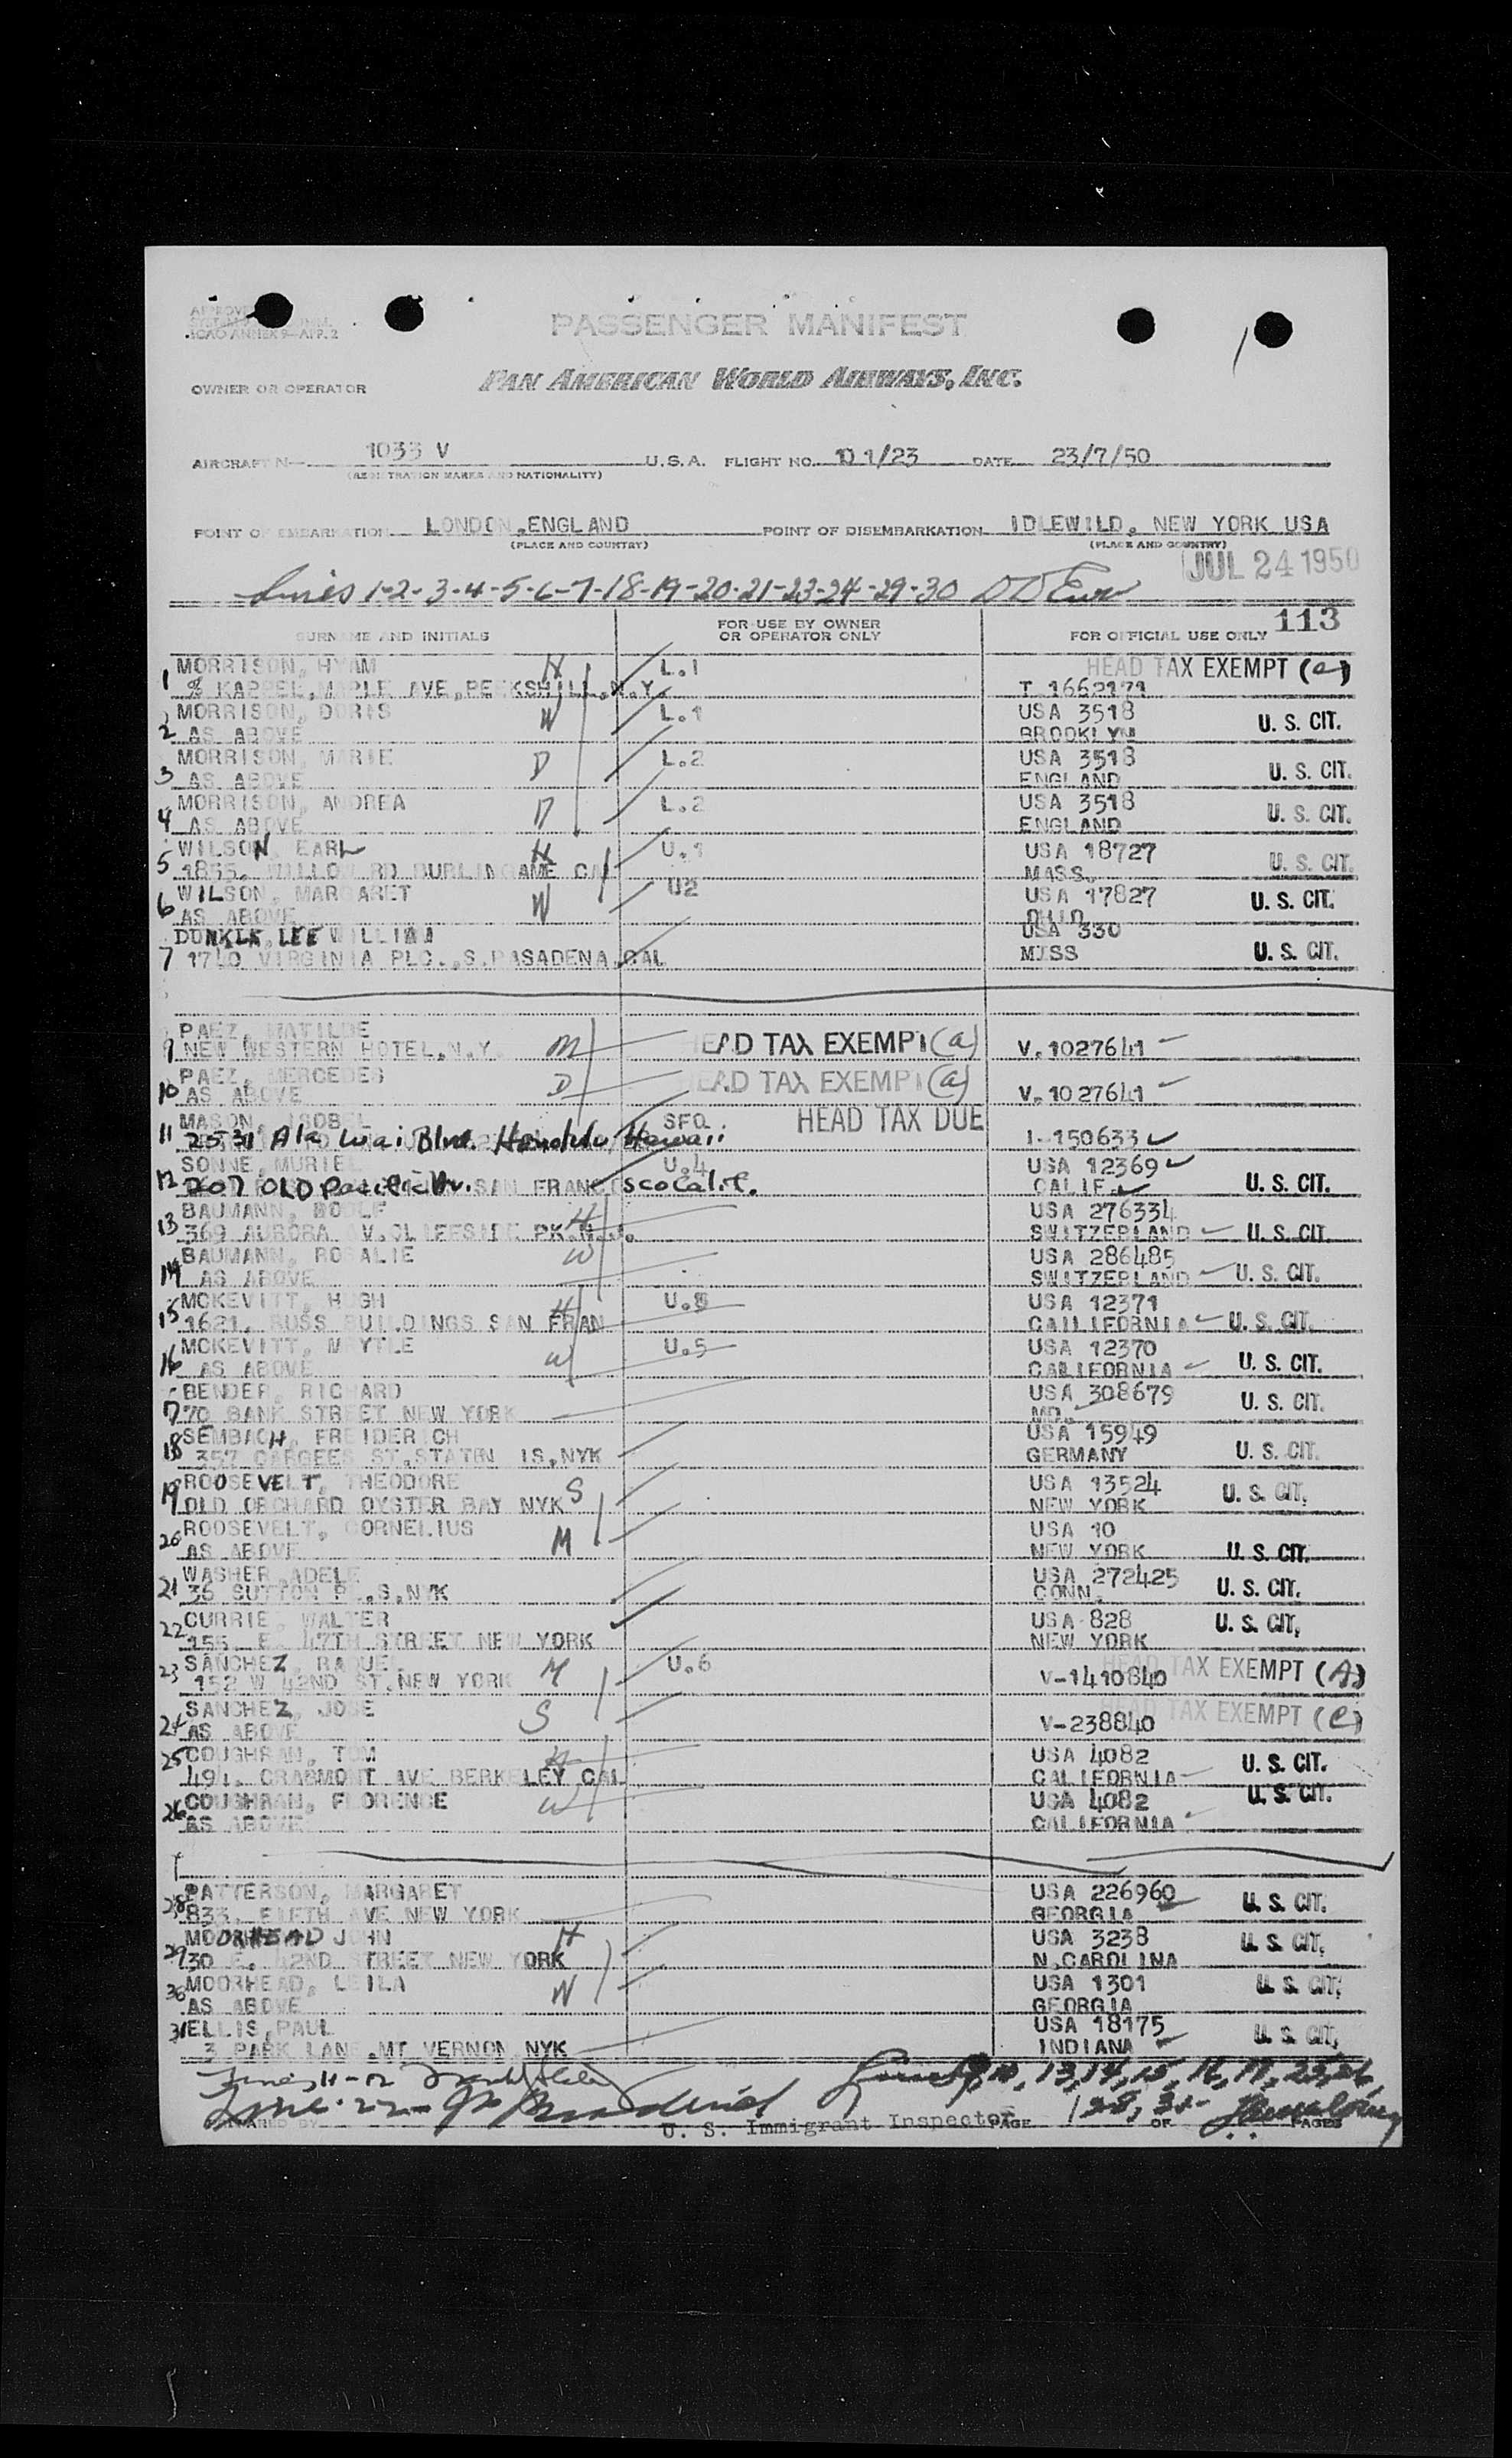 PASSENGER MANIFEST
ICAO ANNEX 9-APP. 2
OWNER OR OPERATOR PAN AMERICAN WORLD AIRWAYS, INC.
AIRCRAFT N- 1033 V U.S.A. FLIGHT NO. 1/23 DATE 23/7/50
(REGISTRATION MARKS AND NATIONALITY)
POINT OF EMBARKATION LONDON, ENGLAND POINT OF DISEMBARKATION IDLEWILD, NEW YORK USA
(PLACE AND COUNTRY) (PLACE AND COUNTRY)
JUL 24 1950
Lines 1-2-3-4-5-6-7-18-19-20-21-23-24-29-30
SURNAME AND INITIALS FOR USE BY OWNER OR OPERATOR ONLY FOR OFFICIAL USE ONLY 113
MORRISON, HYAM H L.1 HEAD TAX EXEMPT (e)
1 % KAPPEL, MAPLE AVE, PEEKSHILL, N.Y. T 1662171
MORRISON, DORIS W L.1 USA 3518 U. S. CIT.
2 AS ABOVE BROOKLYN
MORRISON, MARIE D L.2 USA 3518
3 AS ABOVE ENGLAND U. S. CIT.
MORRISON, ANDREA D L.2 USA 3518
4 AS ABOVE ENGLAND U. S. CIT.
WILSON, EARL H U.1 USA 18727
5 1855, WILLOW RD BURLINGAME CAL MASS. U. S. CIT.
WILSON, MARGARET W U2 USA 17827 U. S. CIT.
6 AS ABOVE OHIO
DUNKLE, LEE WILLIAM USA 330
7 1740 VIRGINIA PLC., S. PASADENA, CAL MISS U. S. CIT.
PAEZ, MATILDE
9 NEW WESTERN HOTEL, N.Y. M HEAD TAX EXEMPT (a) V. 1027641
PAEZ, MERCEDES
10 AS ABOVE D HEAD TAX EXEMPT (a) V. 1027641
MASON, ISOBEL SFO. HEAD TAX DUE
11 2531 Ala Wai Blvd. Honolulu, Hawaii I-150633
SONNE, MURIEL U.4 USA 12369
12 207 OLD Pacific Av. SAN FRANCISCO Calif. CALIF. U. S. CIT.
BAUMANN, H USA 276334
13 369 AURORA AV. CLIFFSIDE PK. N.J. SWITZERLAND U. S. CIT.
BAUMANN, ROSALIE W USA 286485
14 AS ABOVE SWITZERLAND U. S. CIT.
MCKEVITT, HUGH H U.5 USA 12371
15 1621, RUSS BUILDINGS SAN FRAN CALIFORNIA U. S. CIT.
MCKEVITT, MYRTLE W U.5 USA 12370
16 AS ABOVE CALIFORNIA U. S. CIT.
BENDER, RICHARD USA 308679
17 70 BANK STREET NEW YORK MD. U. S. CIT.
SEMBACH, FREIDERICH USA 15949
18 357 STATEN IS. NYK GERMANY U. S. CIT.
ROOSEVELT, THEODORE S USA 13524
19 OLD ORCHARD OYSTER BAY NYK NEW YORK U. S. CIT.
ROOSEVELT, CORNELIUS M USA 10
20 AS ABOVE NEW YORK U. S. CIT.
WASHER, ADELE USA 272425
21 36 SUTTON PL., S. NYK CONN. U. S. CIT.
22 CURRIE, WALTER USA 828 U. S. CIT.
155, E. 47TH STREET NEW YORK NEW YORK
SANCHEZ, RAQUEL M U.6 HEAD TAX EXEMPT (A)
23 152 W 42ND ST. NEW YORK V-1410840
SANCHEZ, JOSE S HEAD TAX EXEMPT (e)
24 AS ABOVE V-238840
25 COUGHRAN, TOM H USA 4082 U. S. CIT.
491, CRAGMONT AVE BERKELEY CAL CALIFORNIA
26 COUGHRAN, FLORENCE W USA 4082 U. S. CIT.
AS ABOVE CALIFORNIA
28 PATTERSON, MARGARET USA 226960
833, FIFTH AVE NEW YORK GEORGIA U. S. CIT.
MOORHEAD JOHN H USA 3238
29 30 E. 42ND STREET NEW YORK N. CAROLINA U. S. CIT.
30 MOORHEAD, LEILA W USA 1301 U. S. CIT.
AS ABOVE GEORGIA
31 ELLIS, PAUL USA 18175
3 PARK LANE, MT VERNON NYK INDIANA U. S. CIT.
Lines 11-12 Lines 9, 10, 13, 14, 15, 16, 17, 25, 26,
Line 22 28, 31
PREPARED BY U. S. Immigrant Inspector PAGE 1 OF PAGES